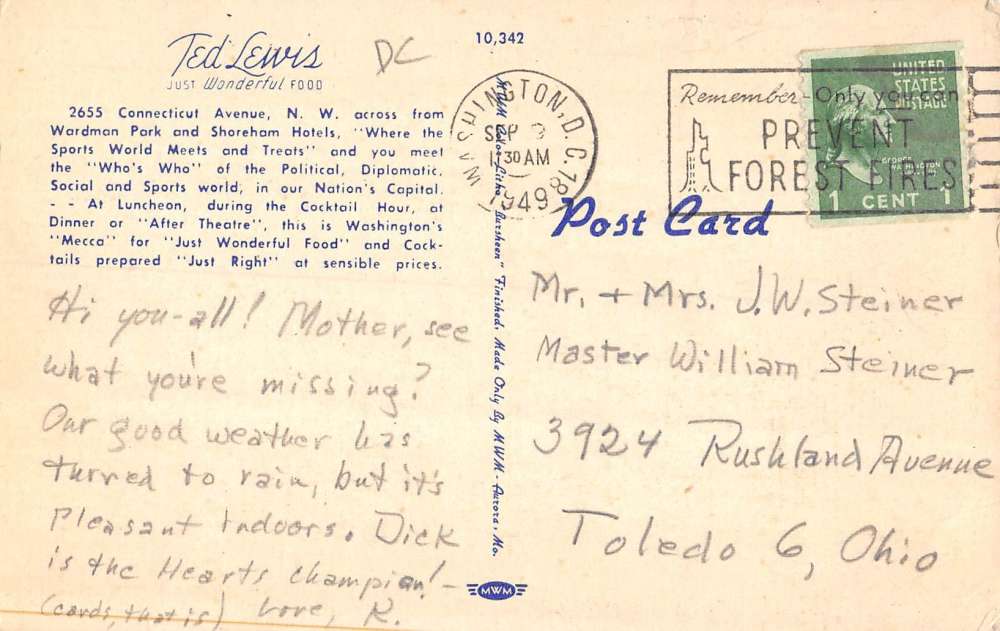 Ted Lewis
JUST Wonderful FOOD
DC
10,342
2655 Connecticut Avenue, N. W. across from
Wardman Park and Shoreham Hotels, "Where the
Sports World Meets and Treats" and you meet
the "Who's Who" of the Political, Diplomatic,
Social and Sports world, in our Nation's Capital.
- - At Luncheon, during the Cocktail Hour, at
Dinner or "After Theatre", this is Washington's
"Mecca" for "Just Wonderful Food" and Cock-
tails prepared "Just Right" at sensible prices.
Hi you-all! Mother, see
what you're missing?
Our good weather has
turned to rain, but it's
pleasant indoors. Dick
is the Hearts champion! -
(cards, that is) Love, R.
MWM Color-Litho "Aursheen" Finished, Made Only By MWM - Aurora, Mo.
MWM
WASHINGTON, D.C. 18
SEP
30 AM
1949
Remember - Only you can
PREVENT
FOREST FIRES
UNITED
STATES
POSTAGE
GEORGE
WASHINGTON
1 CENT 1
Post Card
Mr. + Mrs. J.W. Steiner
Master William Steiner
3924 Rushland Avenue
Toledo 6, Ohio